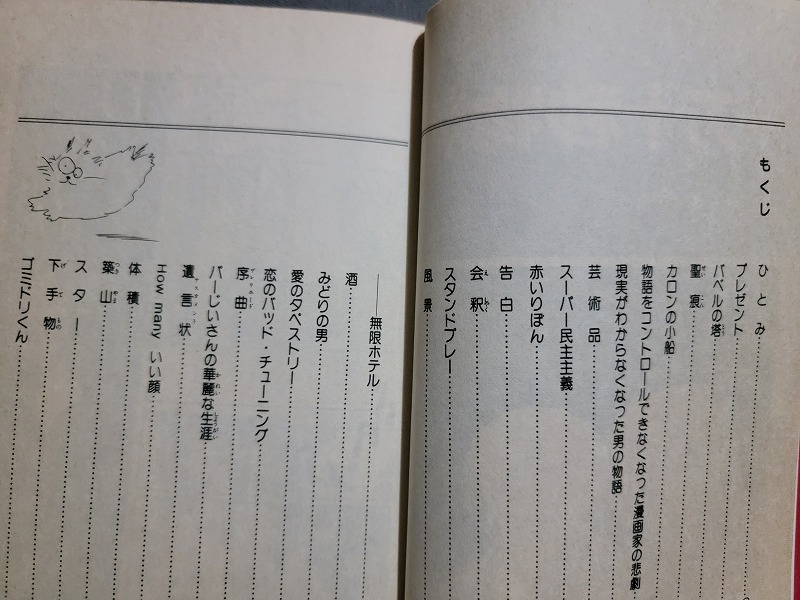 もくじ
ひとみ
プレゼント
バベルの塔
聖痕
カロンの小船
物語をコントロールできなくなった漫画家の悲劇
現実がわからなくなった男の物語
芸術品
スーパー民主主義
赤いりぼん
告白
会釈
スタンドプレー
風景
――無限ホテル
酒
みどりの男
愛のタペストリー
恋のバッド・チューニング
序曲
バーじいさんの華麗な生涯
遺言状
How many いい顔
体積
築山
スター
下手物
ゴミドリくん